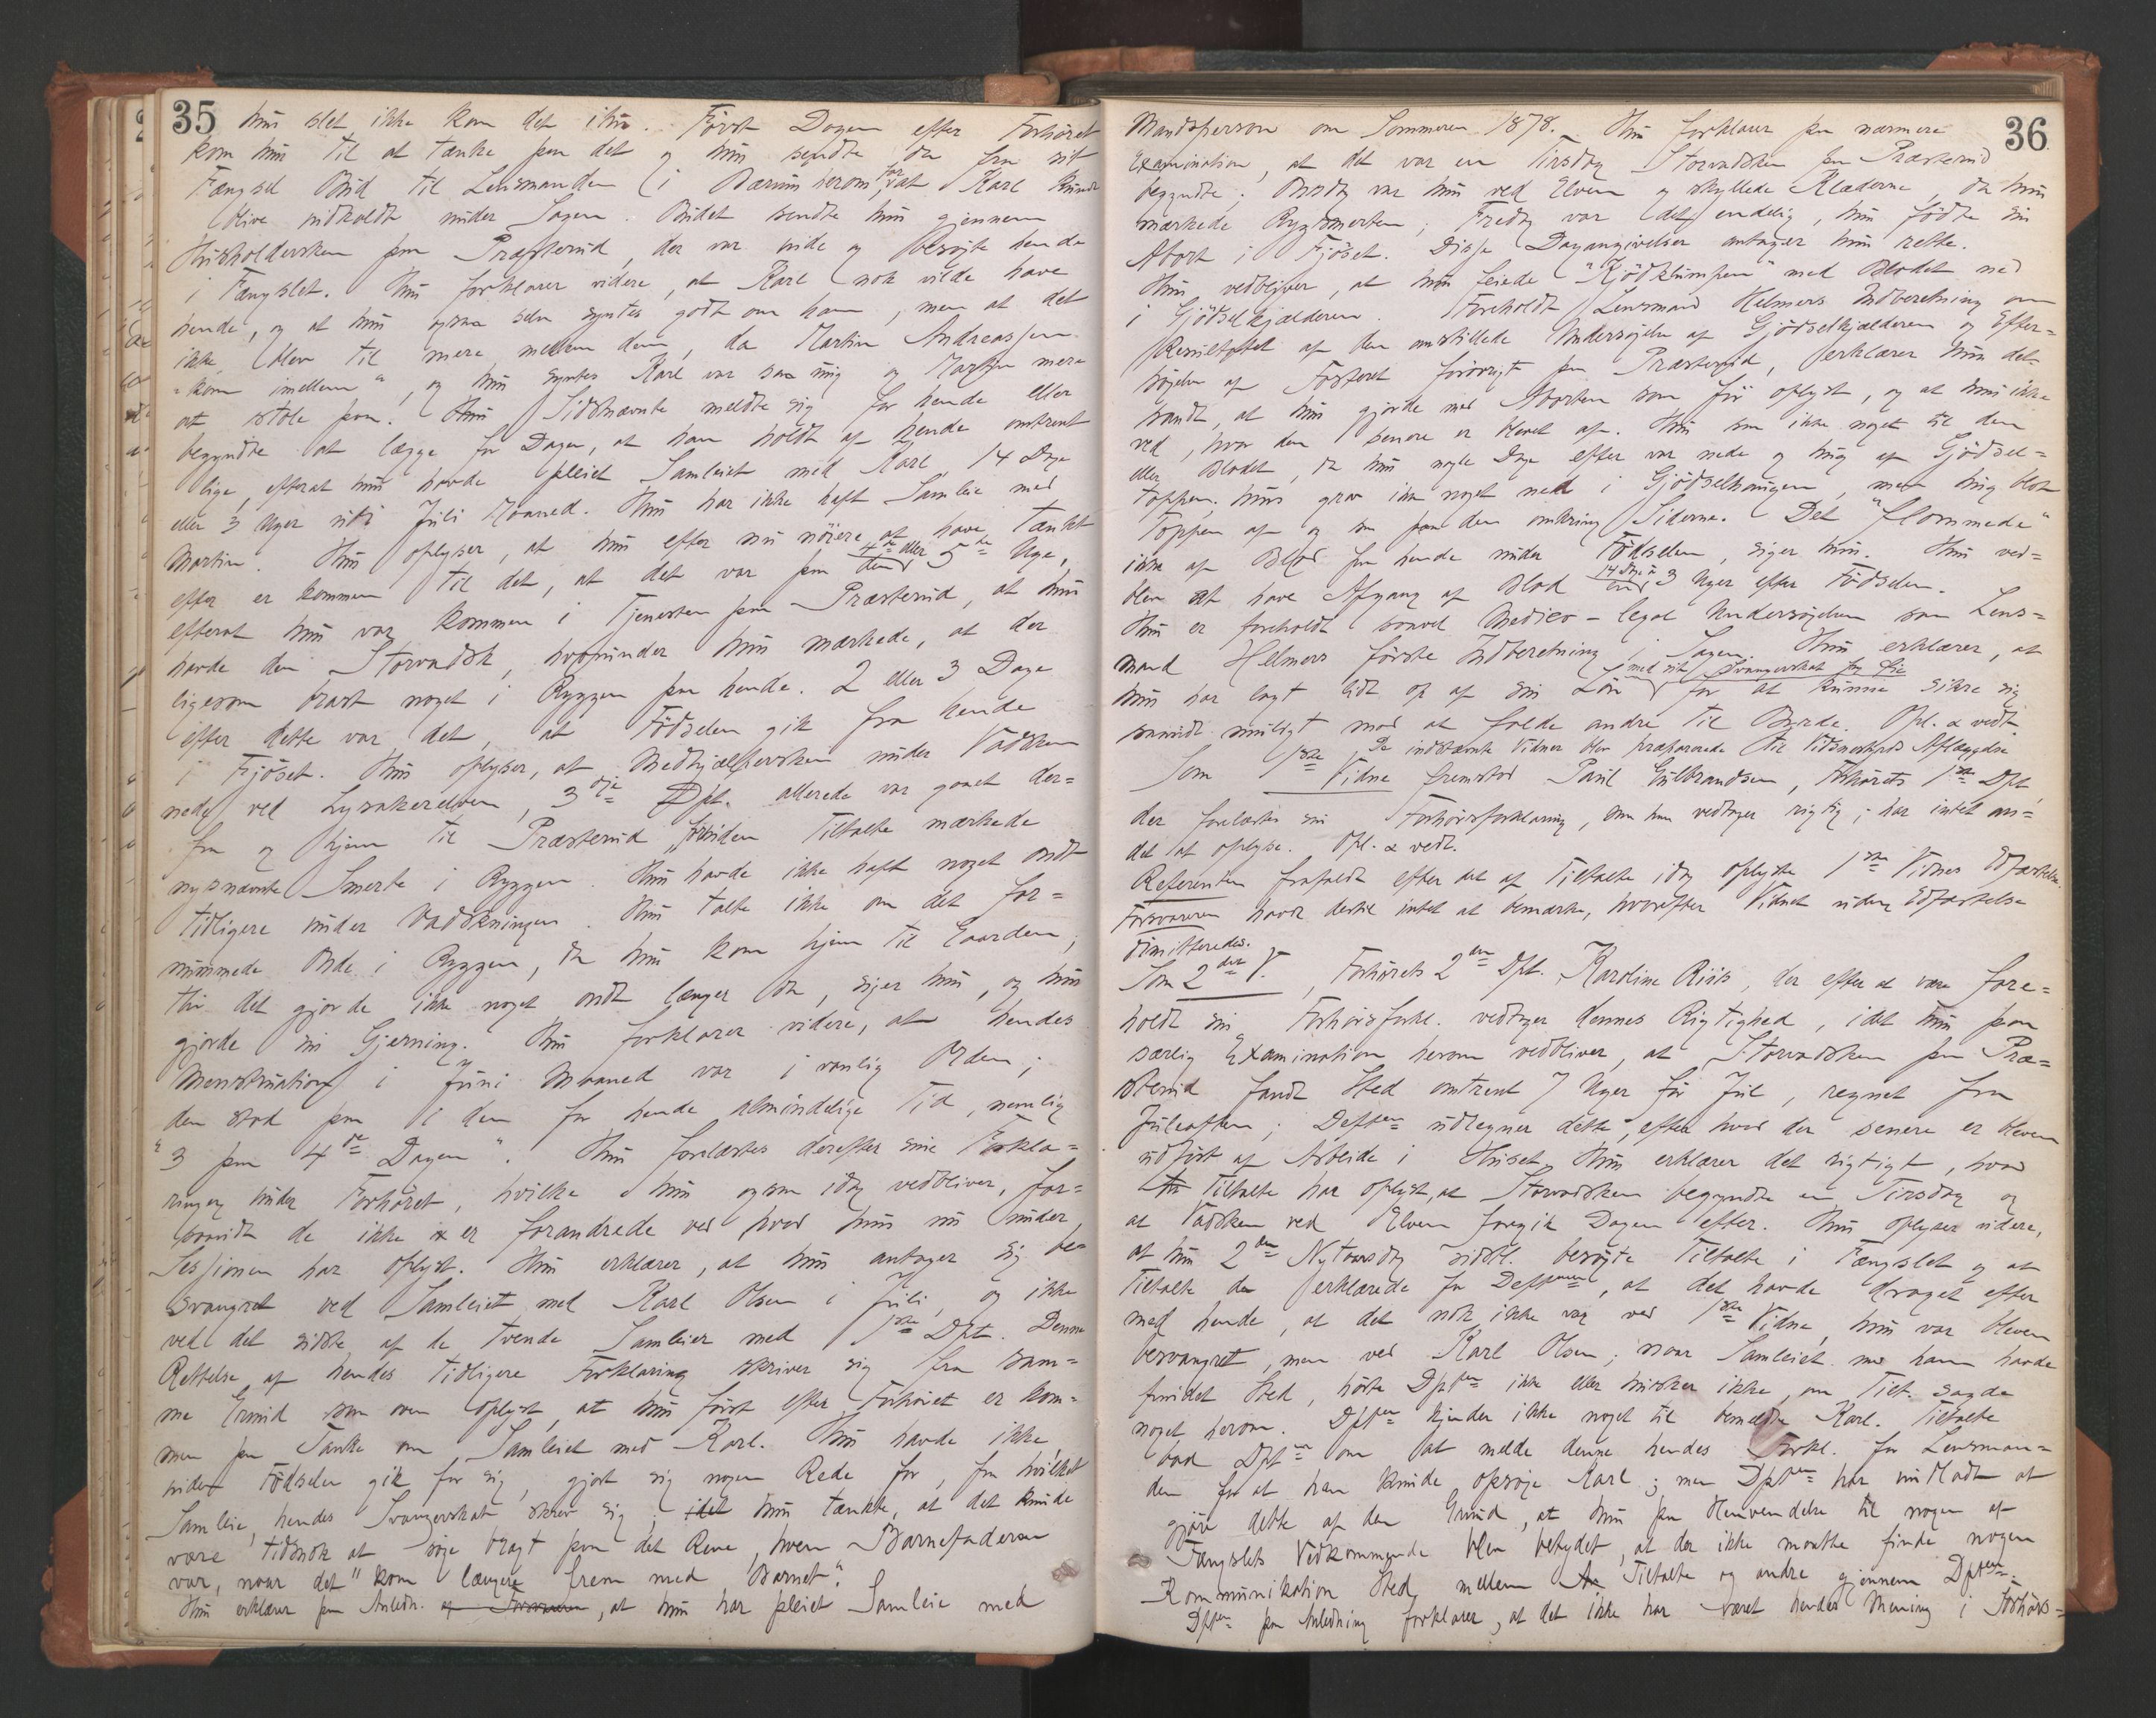 35
hun slet ikke kom det ihu. Først Dagen efter Forhøret
kom hun til at tænke paa det og hun sendte da fra sit
Fængsel Bud til Lensmanden i Bærum herom, for at Karl kunde
blive indkaldt under Sagen. Budet sendte hun gjennem
Husholdersken paa Præsterud, der var inde og besøgte hende
i Fængslet. Hun forklarer videre, at Karl nok vilde have
hende, og at hun ogsaa selv syntes godt om ham, men at det
ikke blev til mere mellem dem, da Martin Andreassen
"kom imellem", og hun syntes Karl var saa ung og Martin mere
at stole paa. Sidstnævnte meldte sig for hende eller
begyndte at lægge for Dagen, at han holdt af hende omtrent
lige, efterat hun havde pleiet Samleiet med Karl 14 Dage
eller 3 Uger ud i Juli Maaned. Hun har ikke haft Samleie med
Martin. Hun oplyser, at hun efter nu nöiere at have tænkt
efter er kommen til det, at det var paa den 4de eller 5te Uge,
efterat hun var kommen i Tjenesten paa Præsterud, at hun
havde den Storvadsk, hvorunder hun mærkede, at der
ligesom brast noget i Ryggen paa hende. 2 eller 3 Dage
efter dette var det, at Fødselen gik fra hende
i Fjøset. Hun oplyser, at Medhjælpersken under Vadsken
nede ved Lysakerelven, 3die Dpt. allerede var gaaet der-
fra og hjem til Præsterud, forinden Tiltalte mærkede
nysnævnte Smerte i Ryggen. Hun havde ikke haft noget ondt
tidligere under Vadskningen. Hun talte ikke om det for-
nummede Onde i Ryggen, da hun kom hjem til Gaarden,
thi det gjorde ikke noget ondt længer da, siger hun, og hun
gjorde sin Gjerning. Hun forklarer videre, at hendes
Menstruation i Juni Maaned var i vanlig Orden;
den stod paa i den for hende almindelige Tid, nemlig
"3 paa 4de Dagen". Hun forelæstes derefter sine Forkla-
ringer under Forhøret, hvilke hun ogsaa idag vedbliver, for-
saavidt de ikke er forandrede ved hvad hun nu under
Sessionen har oplyst. Hun erklærer, at hun antager sig be-
svangret ved Samleiet med Karl Olsen i Juli, og ikke
ved det sidste af de tvende Samleier med 1ste Dpt. Denne
Rettelse af hendes tidligere Forklaring skriver sig fra sam-
me Grund som oven oplyst, at hun først efter Forhøret er kom-
men paa Tanke om Samleiet med Karl. Hun havde ikke,
inden Fødselen gik for sig, gjort sig nogen Rede for, fra hvilket
Samleie hendes Svangerskab skrev sig; idet hun tænkte, at det kunde
være tidsnok at søge bragt paa det Rene, hvem Barnefaderen
var, naar det "kom længere frem med Barnet".
Hun erklærer paa Anledn. af Forsvareren, at hun har pleiet Samleie med
36
Mandsperson om Sommeren 1878. Hun forklarer paa nærmere
Examination, at det var en Tirsdag Storvadsken paa Præsterud
begyndte; Onsdag var hun ved Elven og skyllede Klæderne, da hun
mærkede Rygsmerten; Fredag var det endelig, hun fødte sin
Abort i Fjøset. Disse Dagangivelser antager hun rette.
Hun vedbliver, at hun feiede "Kjødklumpen" med Blodet ned
i Gjødselkjælderen. Foreholdt Lensmand Helmers Indberetning om
Resultatet af den anstillede Undersøgelse af Gjødselkjælderen og Efter-
søgelse af Fosteret forøvrigt paa Præsterud, erklærer hun det
sandt, at hun gjorde med Aborten som før oplyst, og at hun ikke
ved, hvor den senere er blevet af. Hun saa ikke noget til den
eller Blodet, da hun nogle Dage efter var nede og hug af Gjødsel-
toppen; hun grov ikke noget ned i Gjødselhaugen, men hug blot
Toppen af og saa paa den omkring Siderne. Det "flommede"
ikke af Blod fra hende under Fødselen, siger hun. Hun ved-
blev at have Afgang af Blod en 14 Dage à 3 Uger efter Fødselen.
Hun er foreholdt saavel Medico-legal Undersøgelsen som Lens-
mand Helmers første Indberetning i Sagen. Hun erklærer, at
hun har lagt lidt op af sin Løn med sit Svangerskab for Øie for at kunne sikre sig
saavidt muligt mod at falde andre til Byrde. Opl. & vedt.
De indstævnte Vidner blev præparerede til Vidnesbyrds Aflæggelse
Som 1ste Vidne fremstod Paul Gulbrandsen, Forhørets 1ste Dpt,
der forelæstes sin Forhørsforklaring, som han vedtager rigtig; har intet an-
det at oplyse. Opl. & vedt.
Referenten frafaldt efter det af Tiltalte idag oplyste 1ste Vidnes Edfæstelse.
Forsvareren havde dertil intet at bemærke, hvorefter Vidnet uden Edfæstelse
dimitteredes.
Som 2det V., Forhørets 2den Dpt. Karoline Riis, der efter at være fore-
holdt sin Forhørsforkl. vedtager dennes Rigtighed, idet hun paa
særlig Examination herom vedbliver, at Storvadsken paa Præ-
sterud fandt Sted omtrent 7 Uger før Jul, regnet fra
Juleaften; Dpten udregner dette, efter hvad der senere er bleven
udført af Arbeide i Huset. Hun erklærer det rigtigt, hvad
Tiltalte har oplyst, at Storvadsken begyndte en Tirsdag og
at Vadsken ved Elven foregik Dagen efter. Hun oplyser videre,
at hun 2den Nytaarsdag sidstl. besøgte Tiltalte i Fængslet og at
Tiltalte da erklærede for Dpten, at det havde draget efter
med hende, at det nok ikke var ved 1ste Vidne, hun var bleven
besvangret, men ved Karl Olsen; naar Samleiet med ham havde
fundet Sted, hørte Dpten ikke eller husker ikke, om Tilt. sagde
noget herom. Dpten kjender ikke noget til bemeldte Karl. Tiltalte
bad Dpten om at melde denne hendes Forkl. for Lensman-
den for at han kunde opsøge Karl; men Dpten har undladt at
gjøre dette af den Grund, at hun paa Henvendelse til nogen af
Fængslets Vedkommende blev betydet, at der ikke maatte finde nogen
Kommunikation Sted mellem Tiltalte og andre gjennem Dpten.
Dpten paa Anledning forklarer, at det ikke har været hendes Mening i Forhørs-